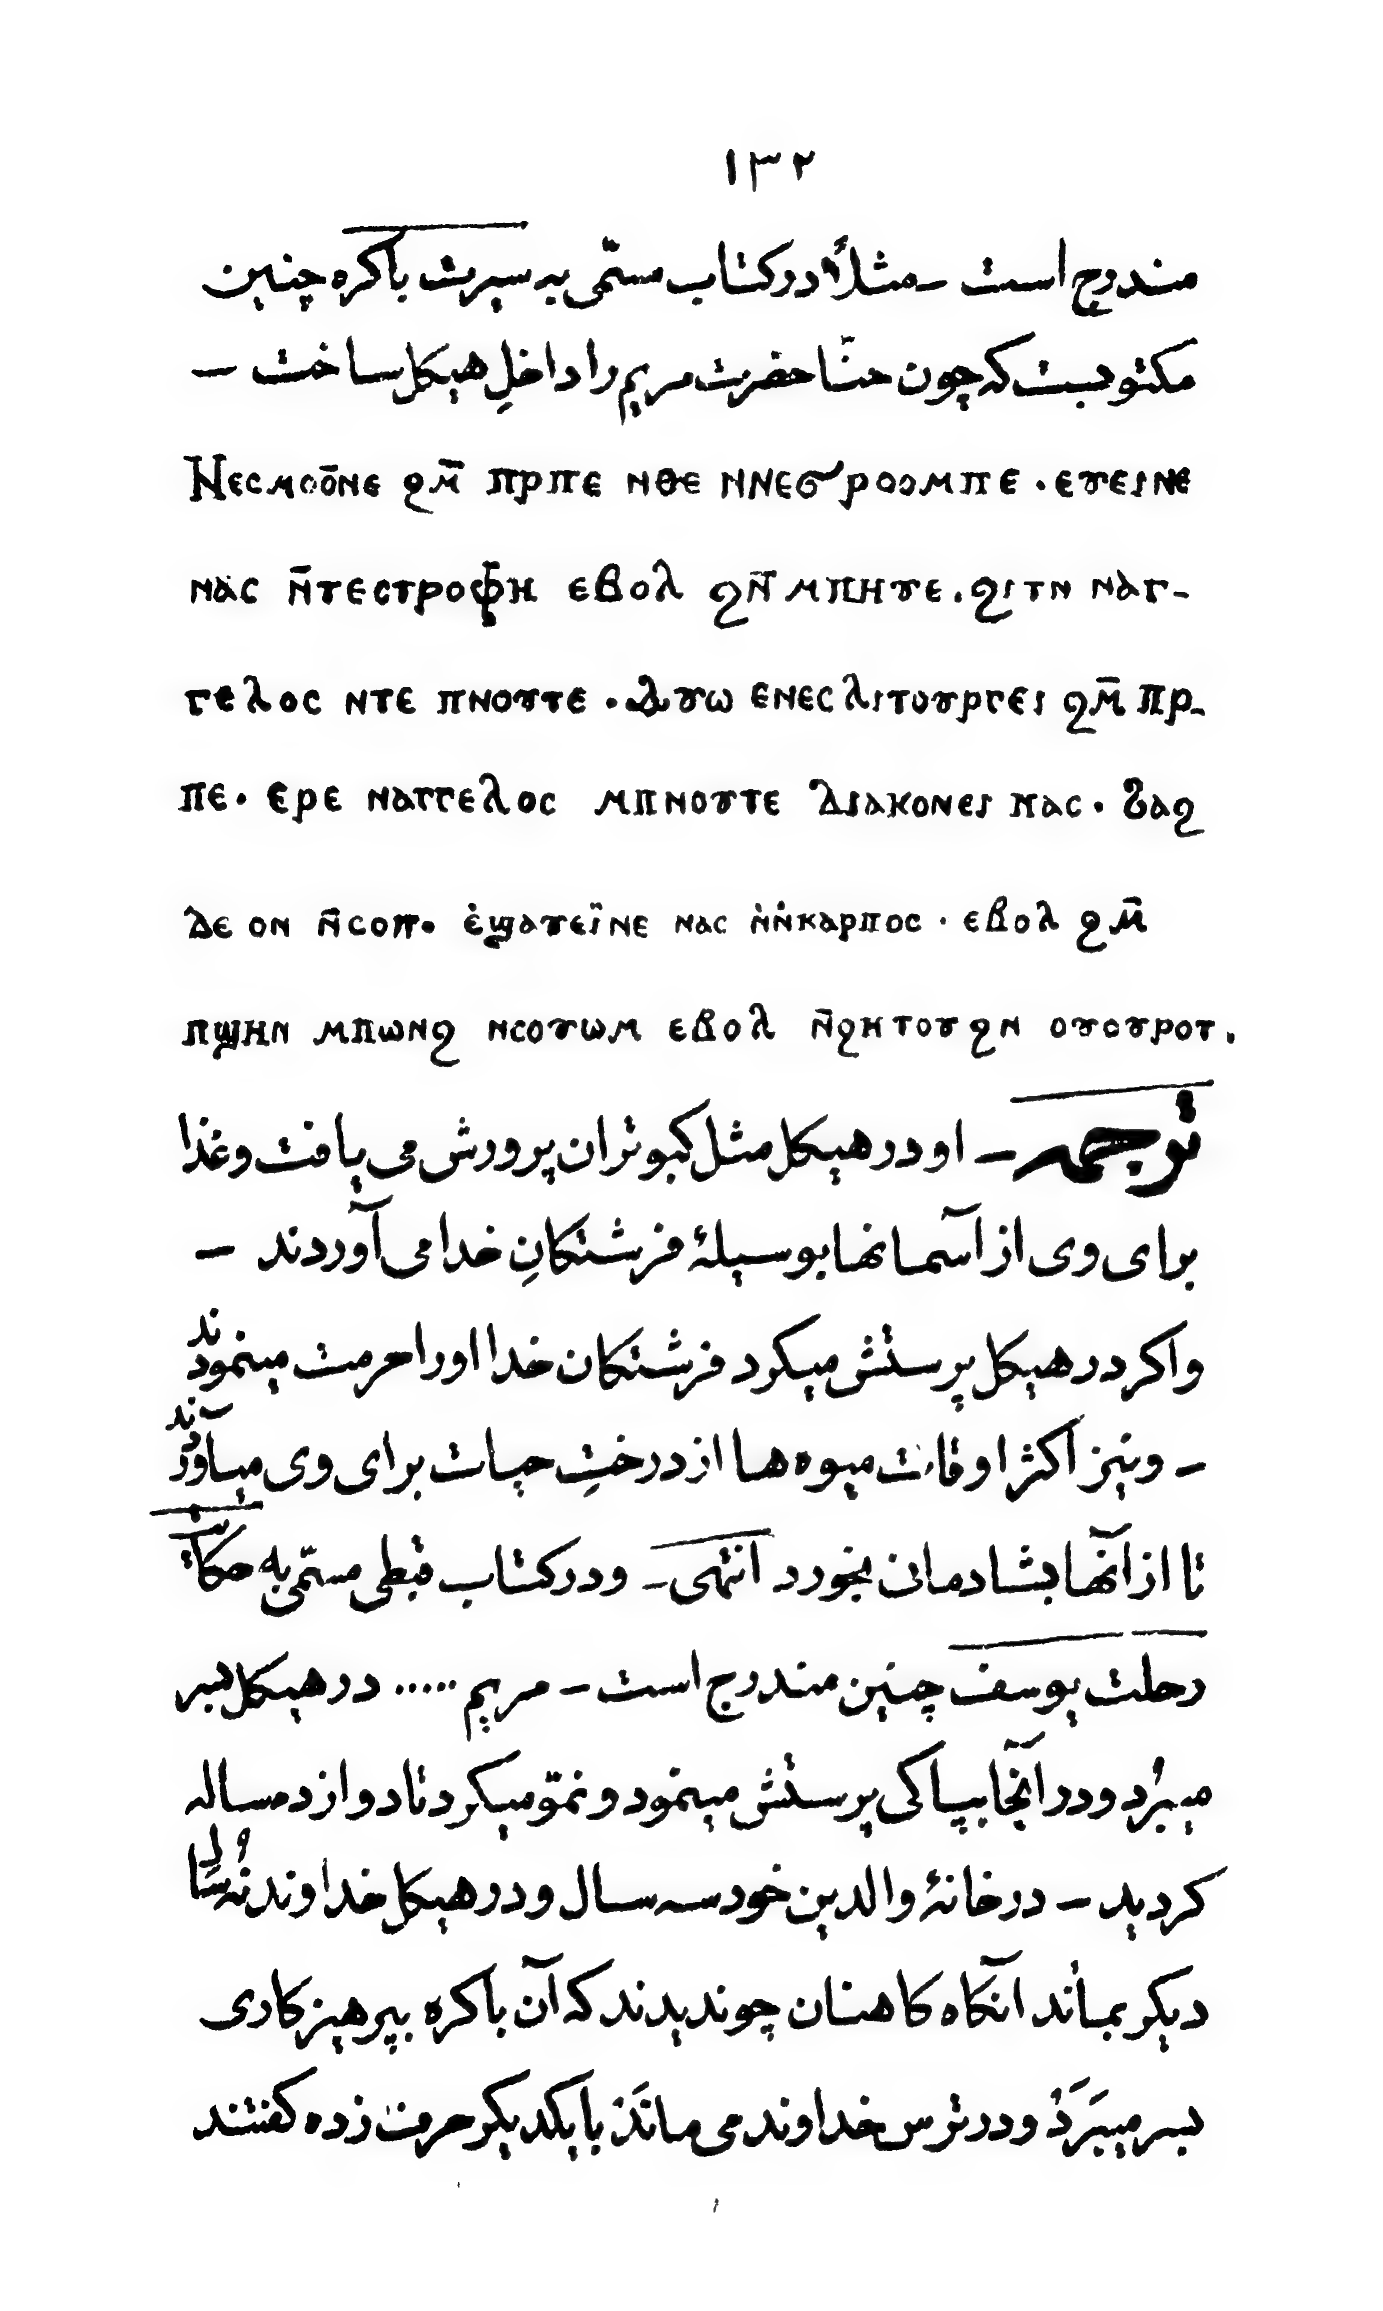 ١٣٢
مندرج است - مثلاً در کتاب مسمّی به سیرت باکره چنین
مکتوبست که چون حنّا حضرت مریم را داخلِ هیکل ساخت -
Ⲛⲉⲥⲙⲟⲟ̄ⲛⲉ ϩⲙ̄ ⲡⲣⲡⲉ ⲛⲑⲉ ⲛⲛⲉϭⲣⲟⲟⲙⲡⲉ · ⲉⲩⲉⲓⲛⲉ
ⲛⲁⲥ ⲛ̄ⲧⲉⲥⲧⲣⲟⲫⲏ ⲉⲃⲟⲗ ϩⲛ̄ ⲙⲡⲏⲩⲉ · ϩⲓⲧⲛ ⲛⲁⲅ-
ⲅⲉⲗⲟⲥ ⲛⲧⲉ ⲡⲛⲟⲩⲧⲉ · ⲁⲩⲱ ⲉⲛⲉⲥⲗⲓⲧⲟⲩⲣⲅⲉⲓ ϩⲙ̄ ⲡⲣ-
ⲡⲉ · ⲉⲣⲉ ⲛⲁⲅⲅⲉⲗⲟⲥ ⲙⲡⲛⲟⲩⲧⲉ ⲇⲓⲁⲕⲟⲛⲉⲓ ⲛⲁⲥ · ϩⲁϩ
ⲇⲉ ⲟⲛ ⲛ̄ⲥⲟⲡ · ⲉ̇ϣⲁⲩⲉⲓ̈ⲛⲉ ⲛⲁⲥ ⲛ̇ⲛ̇ⲕⲁⲣⲡⲟⲥ · ⲉⲃⲟⲗ ϩⲙ̄
ⲡϣⲏⲛ ⲙⲡⲱⲛϩ ⲛⲥⲟⲩⲱⲙ ⲉⲃⲟⲗ ⲛ̄ϩⲏⲧⲟⲩ ϩⲛ ⲟⲩⲟⲩⲣⲟⲧ .
ترجمه - او در هیکل مثل کبوتران پرورش می یافت و غذا
برای وی از آسمانها بوسیلۀ فرشتکانِ خدا می آوردند -
واکر در هیکل پرستش میکرد فرشتکان خدا اورا حرمت مینمودند
- و نیز اکثر اوقات میوه ها از درختِ حیات برای وی میآوردند
تا از آنها بشادمانی بخورد انتهی - و در کتاب قبطی مسمّی به حکایت
رحلت یوسف چنین مندرج است - مریم ..... در هیکل بسر
میبرد و در آنجا بپاکی پرستش مینمود و نموّ میکرد تا دوازده ساله
کردید - در خانۀ والدین خود سه سال و در هیکل خداوند نُه سال
دیکر بماند آنکاه کاهنان چون دیدند که آن باکره بپرهیزکاری
بسر میبرد و در ترس خداوند می ماند بایکدیکر حرف زده کفتند